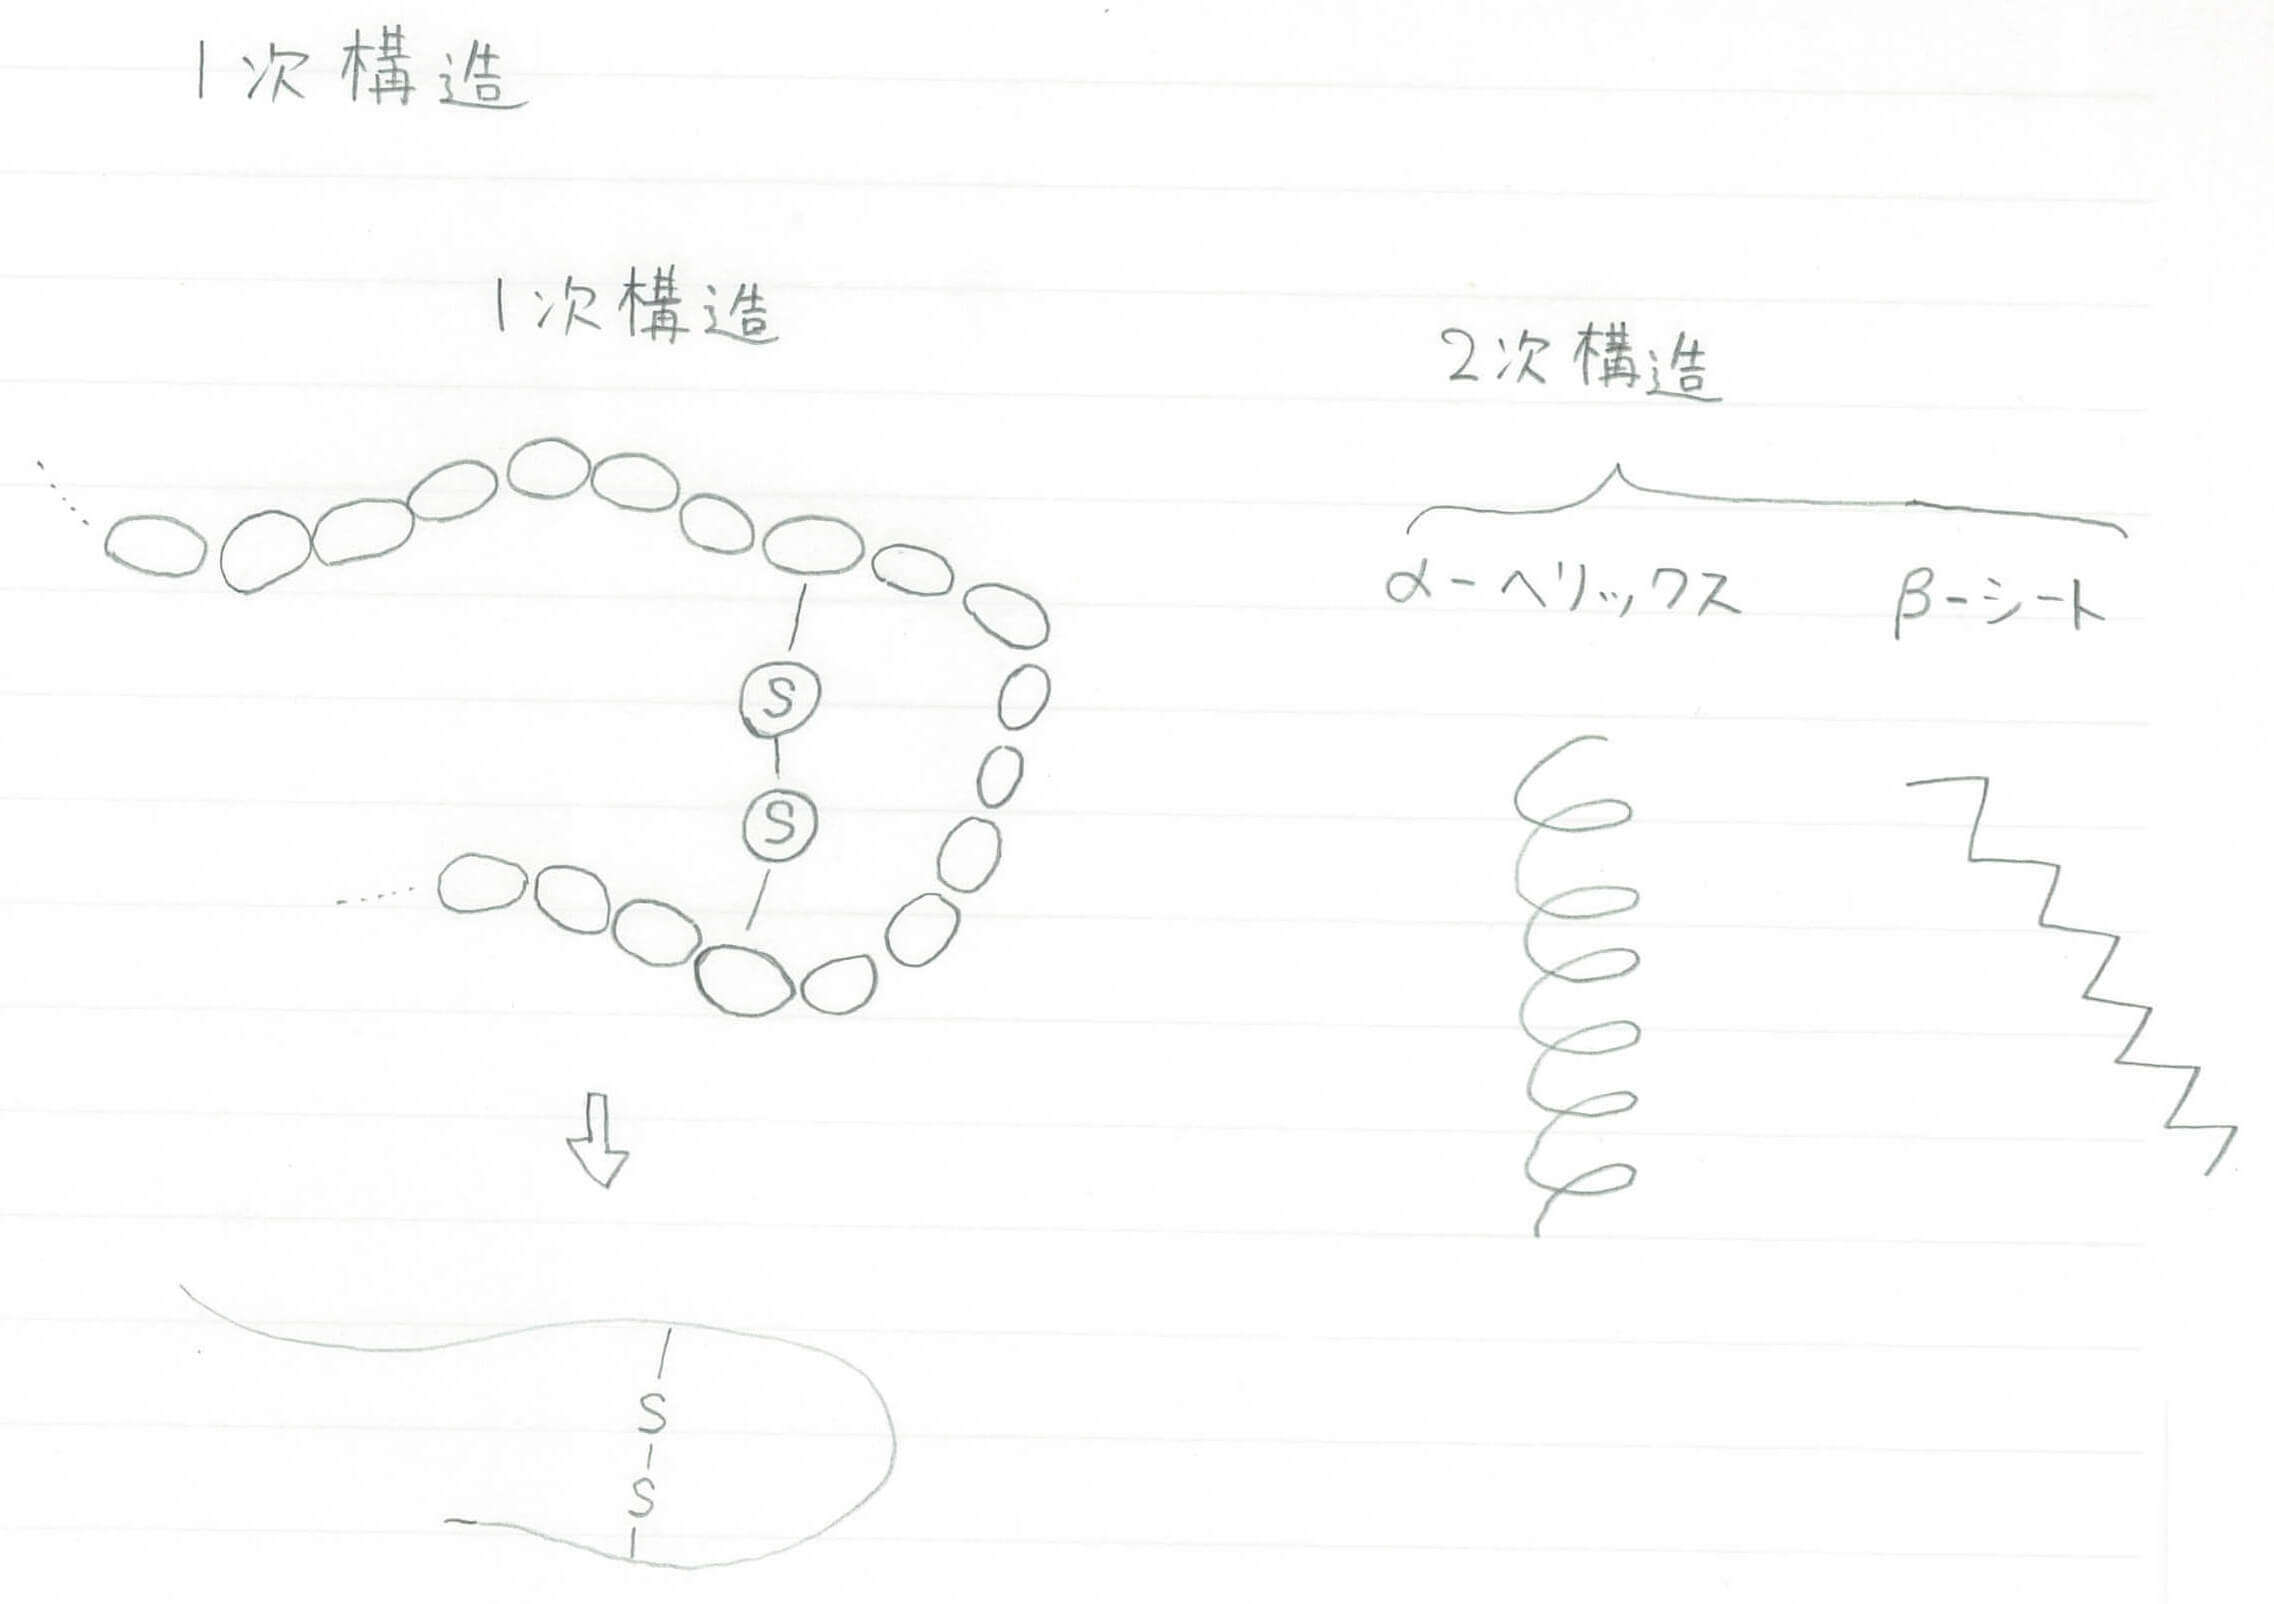 1次構造
1次構造
2次構造
α-ヘリックス β-シート
S
S
S
S